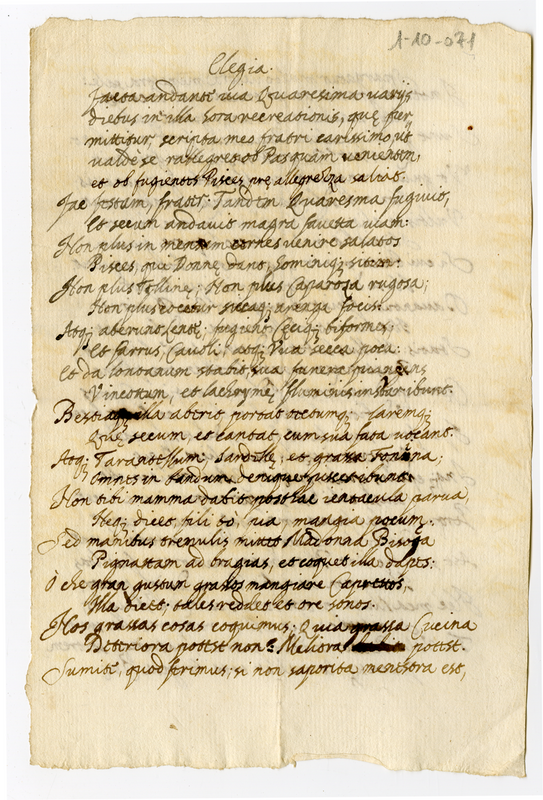 1-10-071
Elegia.
Facta andante uia Quaresima uarijs
diebus in illa hora recreationis, quę per
mittitur, scripta meo fratri carissimo, ut
ualde se rallegret ob Pasquam uenientem,
et ob fugientes Pisces prę allegrezza saltet.
Fac festam, frater: Tandem Quaresima fugiuit,
Et secum andauit magra sauetta uiam:
Non plus in mensam carnes uenire salatos
Pisces, quę Donnę dant,
Non plus; Non plus Caparosa rugosa;
Non plus cocetur siccaq; arenga focis.
Atq; aberunt lente; fugient Ceciq; biformes,
Et farrus, Cauoli, atq; Vua secca poca:
Et da lontanum stabit sua funera
Vincottum, et lachrymę fluminis instar ibunt.
Bestia illa aberit, portat tectumq; Laremq;
Quę secum, et cantat, cum sua fata uocant.
Atq; Tarantellum, Sardellę, et grassa tonina;
Omnes in fundum denique
Non tibi mamma dabit post hac ientacula parua,
Neq; dicet, fili to, uia mangia pocum.
Sed manibus tremulis mittet Madonna Bisoga
Pignattam ad bragias, et coquet illa dapes:
O che gran gustum grassos mangiare Caprettos,
Illa dicet, tales reddet et ore sonos.
Nos grassas cosas coquimus; Quia grassa Cucina
Deteriora potest non: Meliora potest.
Sumite, quod ferimus; si non saporita menestra est,